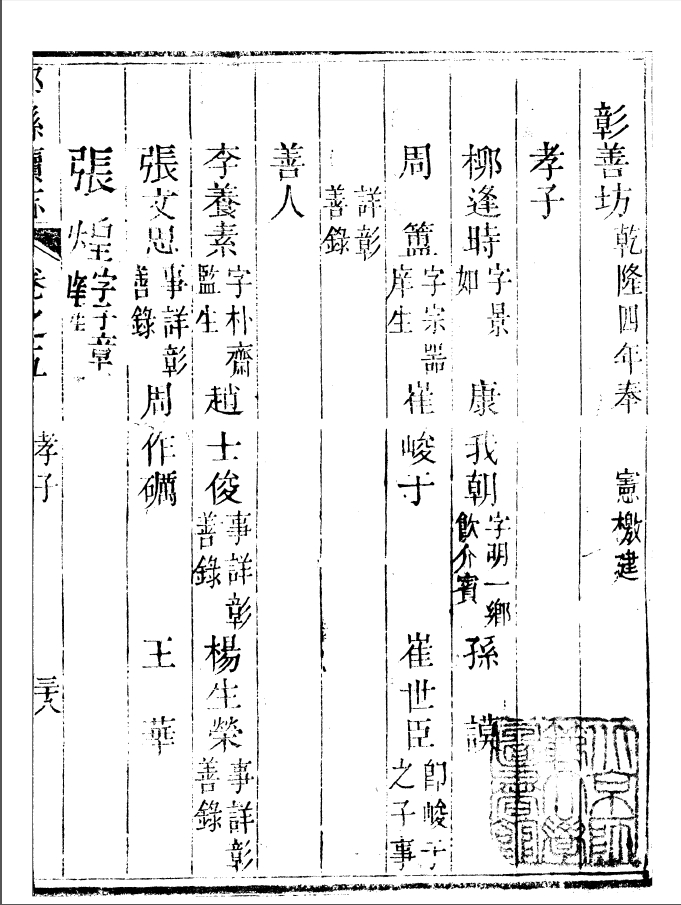 彰善坊乾隆四年奉 憲檄建
孝子
柳逢時字景如 康我朝字明一鄉飲介賓 孫謨
周簠字宗器庠生 崔峻于 崔世臣即峻于之子事
詳彰善錄
善人
李養素字朴齋監生 趙士俊事詳彰善錄 楊生榮事詳彰善錄
張文思事詳彰善錄 周作礪 王華
張煌字子章庠生
縣續志 卷之五 孝子